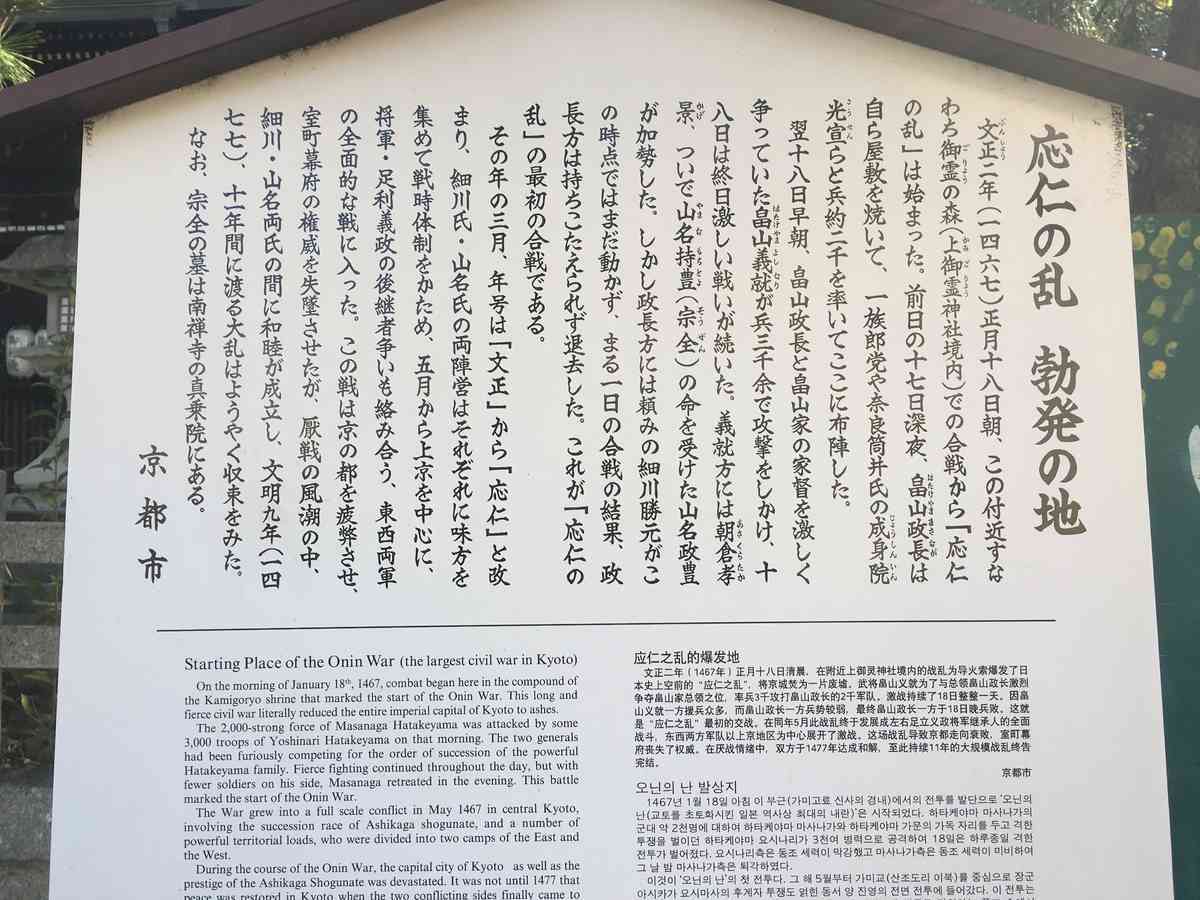 応仁の乱 勃発の地
文正二年(一四六七)正月十八日朝、この付近すな
わち御霊の森(上御霊神社境内)での合戦から「応仁
の乱」は始まった。前日の十七日深夜、畠山政長は
自ら屋敷を焼いて、一族郎党や奈良筒井氏の成身院
光宣らと兵約二千を率いてここに布陣した。
翌十八日早朝、畠山政長と畠山家の家督を激しく
争っていた畠山義就が兵三千余で攻撃をしかけ、十
八日は終日激しい戦いが続いた。義就方には朝倉孝
景、ついで山名持豊(宗全)の命を受けた山名政豊
が加勢した。しかし政長方には頼みの細川勝元がこ
の時点ではまだ動かず、まる一日の合戦の結果、政
長方は持ちこたえられず退去した。これが「応仁の
乱」の最初の合戦である。
その年の三月、年号は「文正」から「応仁」と改
まり、細川氏・山名氏の両陣営はそれぞれに味方を
集めて戦時体制をかため、五月から上京を中心に、
将軍・足利義政の後継者争いも絡み合う、東西両軍
の全面的な戦に入った。この戦は京の都を疲弊させ、
室町幕府の権威を失墜させたが、厭戦の風潮の中、
細川・山名両氏の間に和睦が成立し、文明九年(一四
七七)、十一年間に渡る大乱はようやく収束をみた。
なお、宗全の墓は南禅寺の真乗院にある。
京都市
Starting Place of the Onin War (the largest civil war in Kyoto)
On the morning of January 18th, 1467, combat began here in the compound of
the Kamigoryo shrine that marked the start of the Onin War. This long and
fierce civil war literally reduced the entire imperial capital of Kyoto to ashes.
The 2,000-strong force of Masanaga Hatakeyama was attacked by some
3,000 troops of Yoshinari Hatakeyama on that morning. The two generals
had been furiously competing for the order of succession of the powerful
Hatakeyama family. Fierce fighting continued throughout the day, but with
fewer soldiers on his side, Masanaga retreated in the evening. This battle
marked the start of the Onin War.
The War grew into a full scale conflict in May 1467 in central Kyoto,
involving the succession race of Ashikaga shogunate, and a number of
powerful territorial loads, who were divided into two camps of the East and
the West.
During the course of the Onin War, the capital city of Kyoto as well as the
prestige of the Ashikaga Shogunate was devastated. It was not until 1477 that
peace was restored in Kyoto when the two conflicting sides finally came to
应仁之乱的爆发地
文正二年(1467年)正月十八日清晨,在附近上御灵神社境内的战乱为导火索爆发了日
本史上空前的“应仁之乱”,将京城焚为一片废墟。武将畠山义就为了与总领畠山政长激烈
争夺畠山家总领之位,率兵3千攻打畠山政长的2千军队。激战持续了18日整整一天。因畠
山义就一方援兵众多,而畠山政长一方兵势较弱,最终畠山政长一方于18日晚兵败。这就
是“应仁之乱”最初的交战。在同年5月此战乱终于发展成左右足立义政将军继承人的全面
战斗,东西两方军队以上京地区为中心展开了激战。这场战乱导致京都走向衰败,室町幕
府丧失了权威。在厌战情绪中,双方于1477年达成和解,至此持续11年的大规模战乱终告
完结。
京都市
오닌의 난 발상지
1467년 1월 18일 아침 이 부근(가미고료 신사의 경내)에서의 전투를 발단으로 '오닌의
난(교토를 초토화시킨 일본 역사상 최대의 내란)'은 시작되었다. 하타케야마 마사나가의
군대 약 2천명에 대하여 하타케야마 마사나가와 하타케야마 가문의 가독 자리를 두고 격한
투쟁을 벌이던 하타케야마 요시나리가 3천여 병력으로 공격하여 18일은 하루종일 격한
전투가 벌어졌다. 요시나리측은 동조 세력이 막강했고 마사나가측은 동조 세력이 미비하여
그 날 밤 마사나가측은 퇴각하였다.
이것이 '오닌의 난'의 첫 전투다. 그 해 5월부터 가미교(산조도리 이북)를 중심으로 장군
아시카가 요시마사의 후계자 투쟁도 얽힌 동서 양 진영의 전면 전투에 들어갔다. 이 전투는